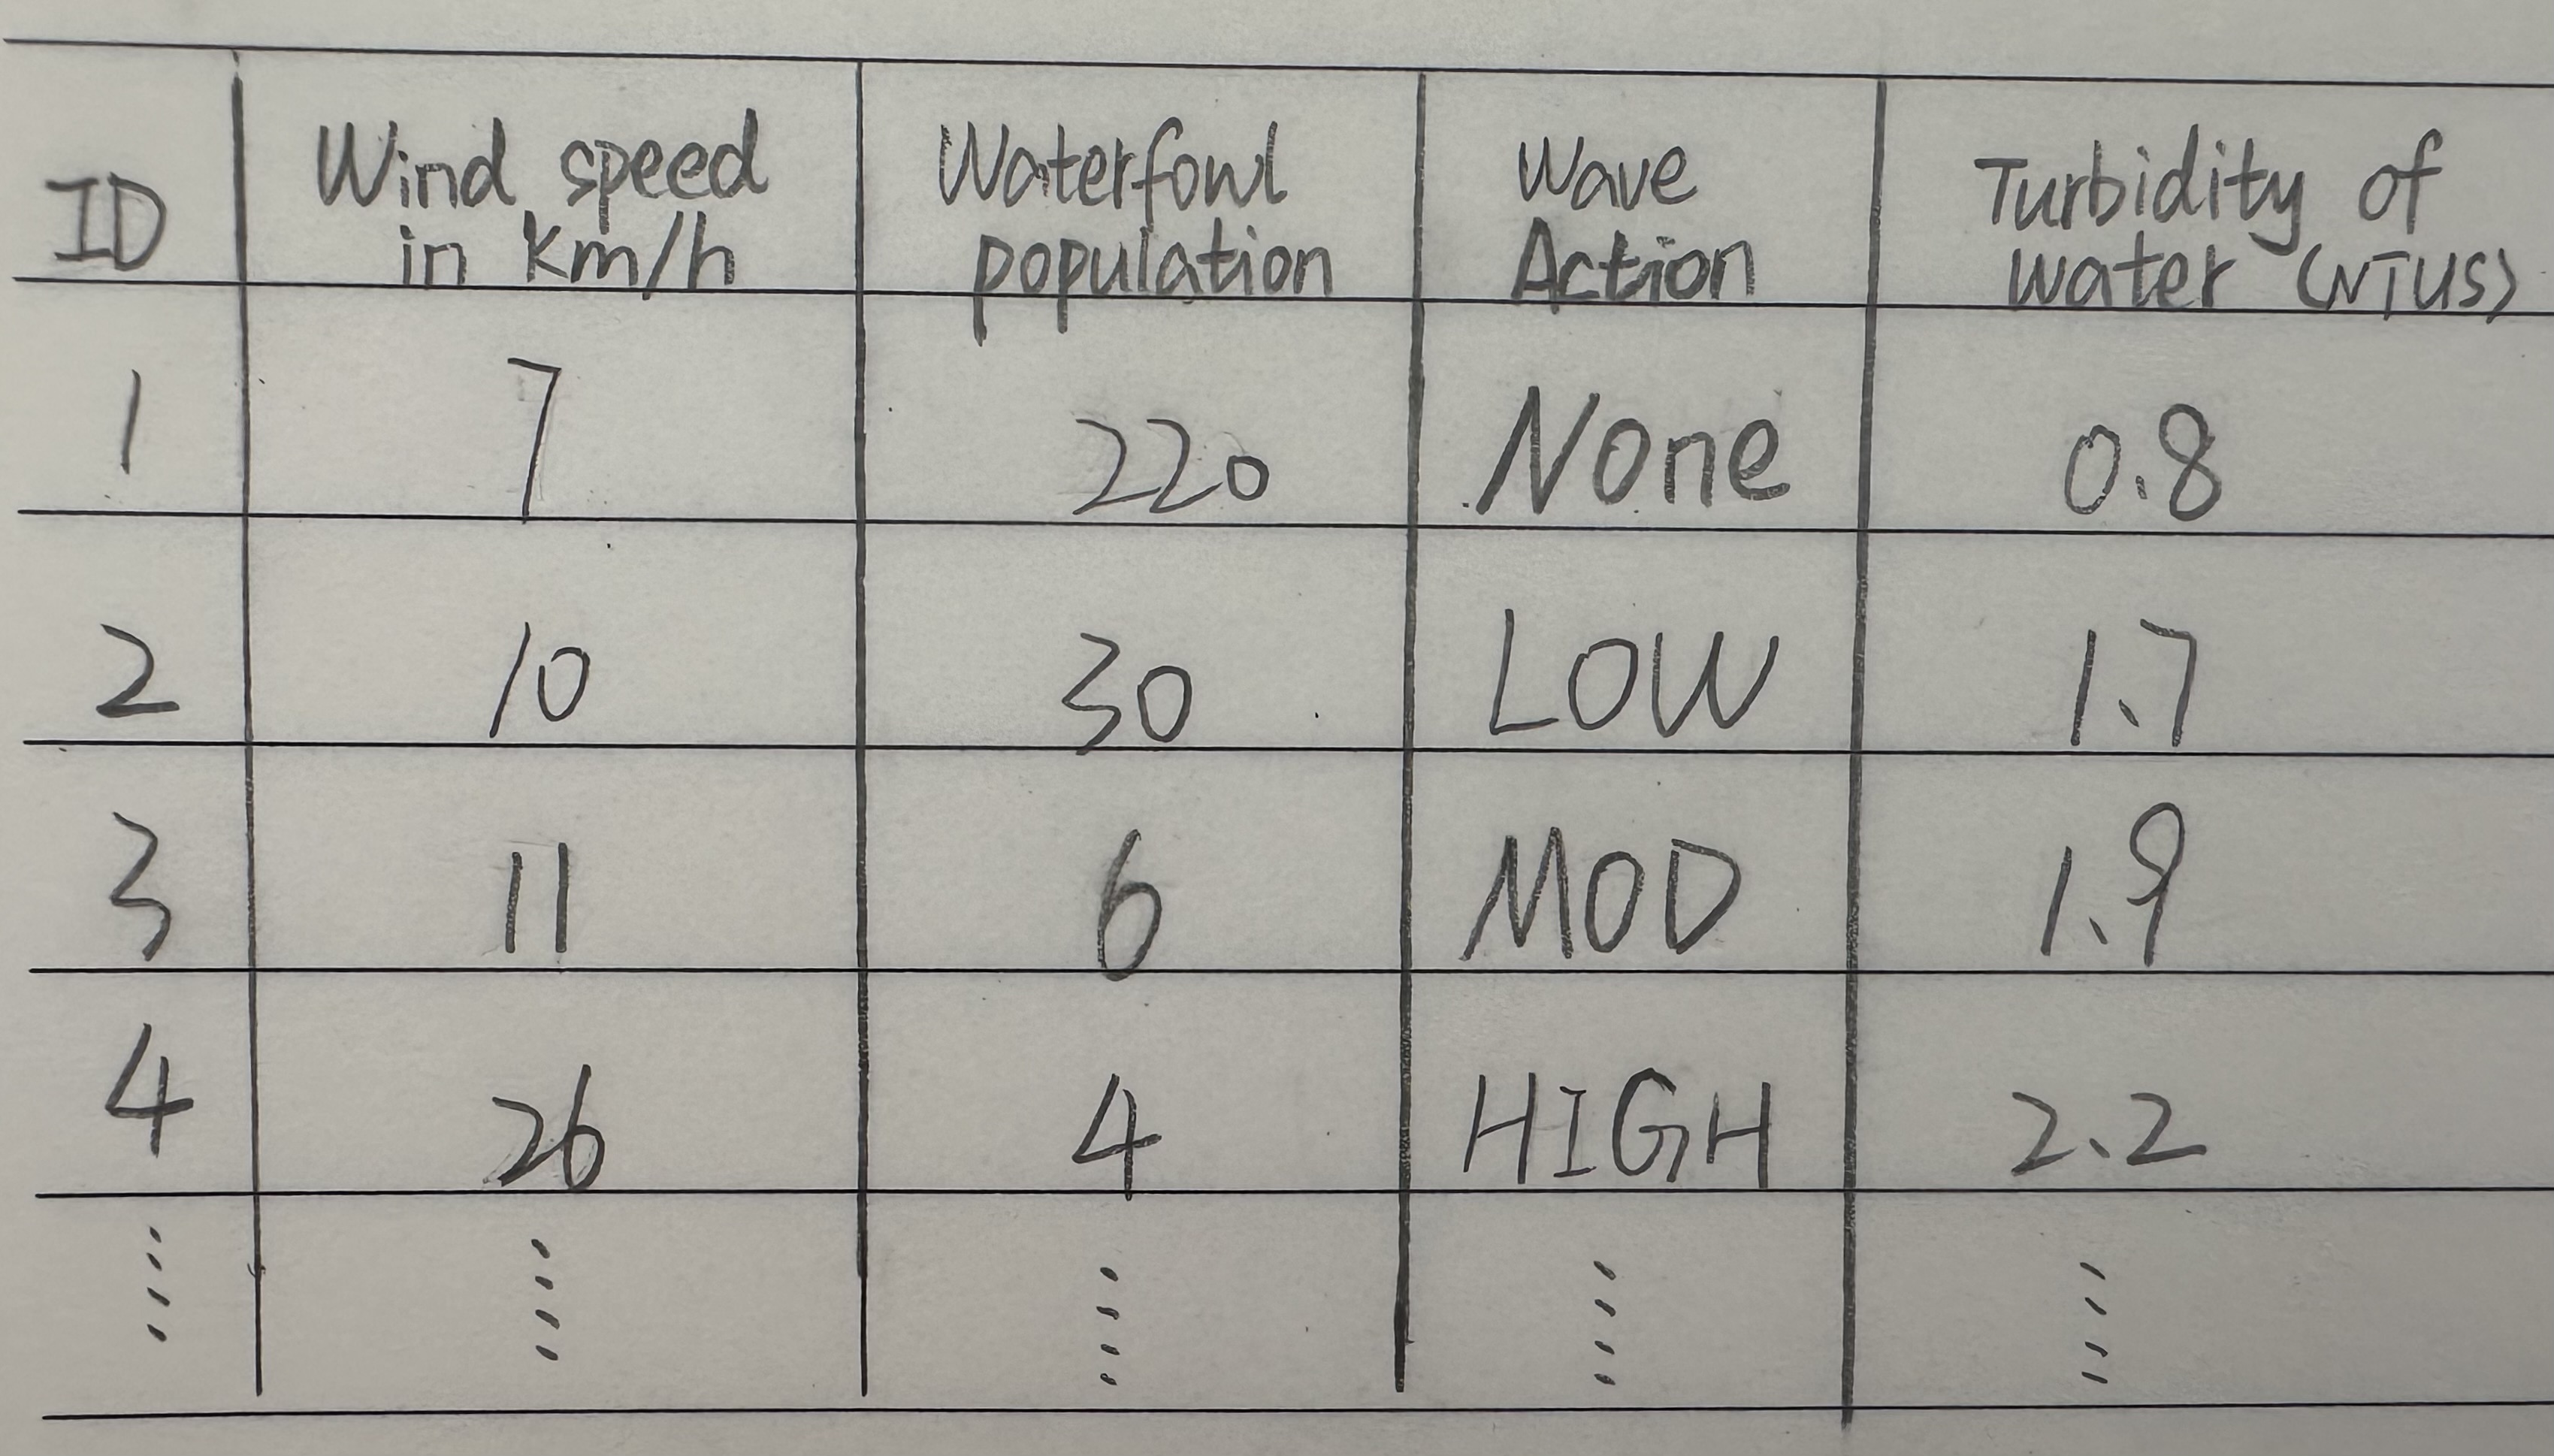 ID Wind speed in Km/h Waterfowl population Wave Action Turbidity of water (NTUS)
1 7 220 None 0.8
2 10 30 LOW 1.7
3 11 6 MOD 1.9
4 26 4 HIGH 2.2